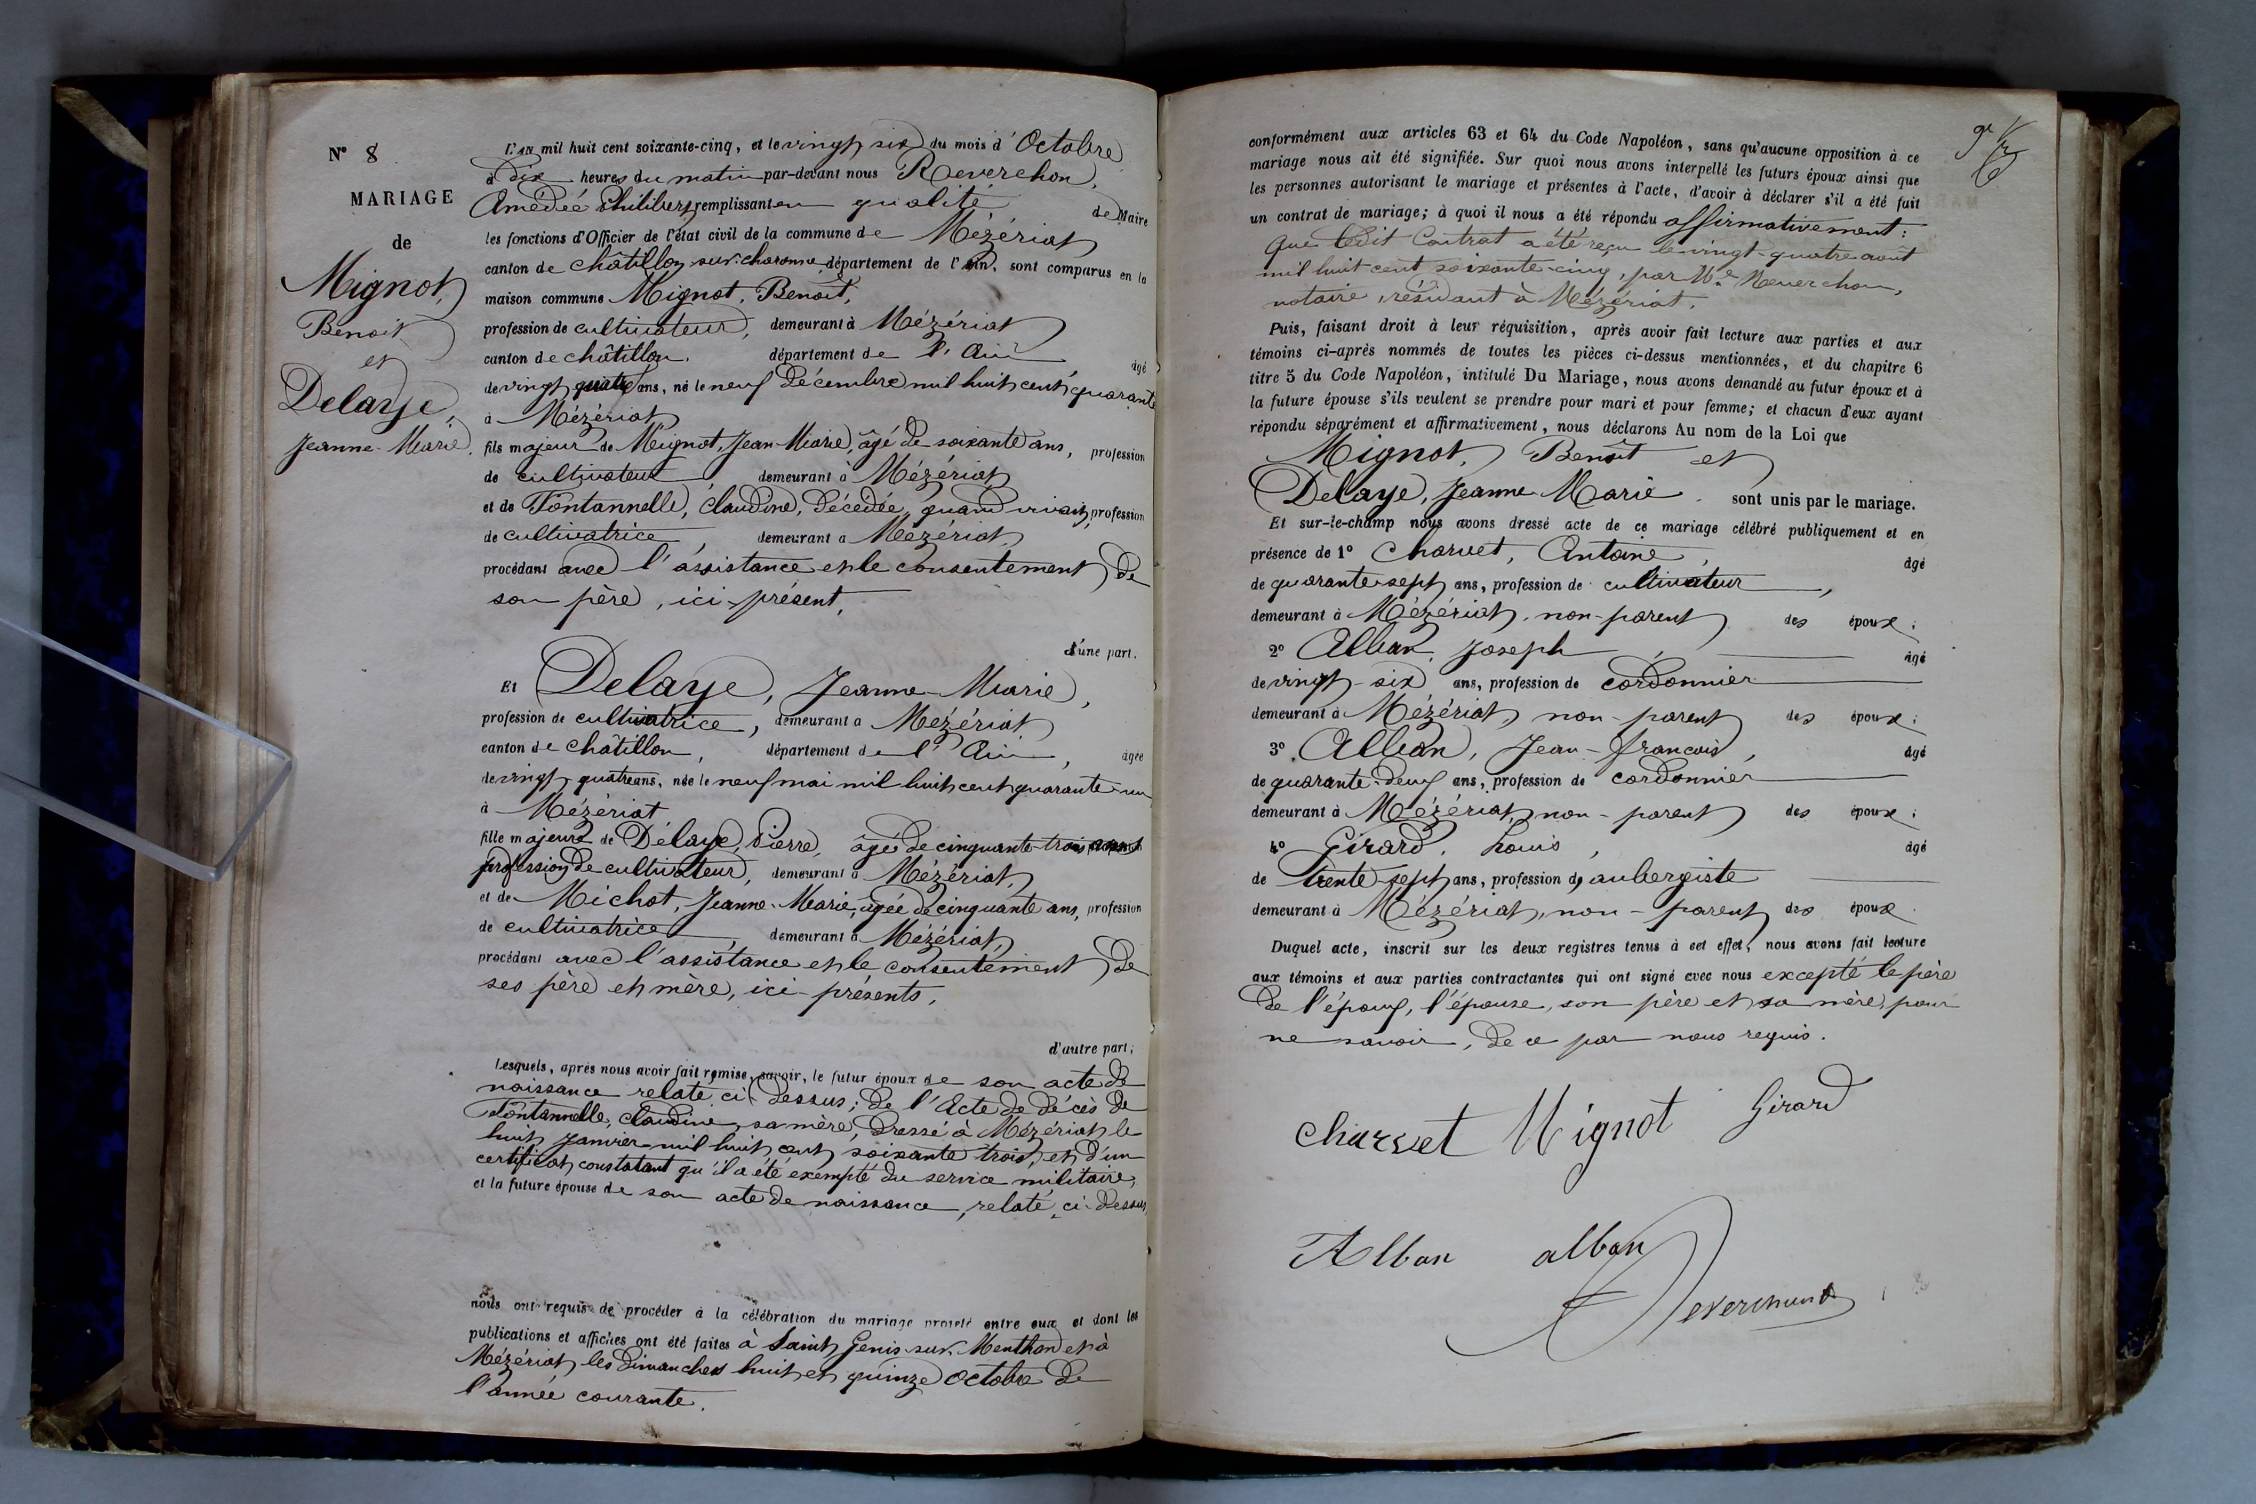 N° 8
MARIAGE
de
Mignot,
Benoit
et
Delaye,
Jeanne-Marie.
L'AN mil huit cent soixante-cinq, et le vingt six du mois d'Octobre
à dix heures du matin par-devant nous Reverchon,
Amédée Philibert, remplissant en qualité de Maire
les fonctions d'Officier de l'état civil de la commune de Mézériat
canton de châtillon sur-charonne département de l'Ain, sont comparus en la
maison commune Mignot, Benoît,
profession de cultivateur, demeurant à Mézériat
canton de châtillon. département de l'Ain âgé
de vingt quatre ans, né le neuf Décembre mil huit cent quarante
à Mézériat
fils majeur de Mignot, Jean-Marie, âgé de soixante ans, profession
de cultivateur demeurant à Mézériat
et de Fontannelle, Claudine, décédée, quand vivait, profession
de cultivatrice, demeurant a Mézériat,
procédant avec l'assistance et le consentement de
son père, ici-présent,
d'une part.
Et Delaye, Jeanne-Marie,
profession de cultivatrice, demeurant a Mézériat
canton de châtillon, département de l'Ain, âgée
de vingt quatre ans, née le neuf mai mil huit cent quarante-un
à Mézériat
fille majeure de Délaye, Pierre, âgé de cinquante-trois ans
profession de cultivateur, demeurant à Mézériat,
et de Michot, Jeanne-Marie, âgée de cinquante ans, profession
de cultivatrice, demeurant à Mézériat,
procédant avec l'assistance et le consentement de
ses père et mère, ici-présents,
d'autre part;
Lesquels, après nous avoir fait remise, savoir, le futur époux de son acte de
naissance relaté ci-dessus; de l'Acte de décès de
Fontannelle, Claudine, sa mère, Dressé à Mézériat le
huit Janvier mil huit cent soixante trois, et d'un
certificat constatant qu'il a été exempté du service militaire,
et la future épouse de son acte de naissance, relaté, ci-dessus,
nous ont requis de procéder à la célébration du mariage projeté entre eux et dont les
publications et affiches ont été faites à Saint Genis-sur-Menthon et à
Mézériat les Dimanches huit et quinze Octobre de
l'année courante.
conformément aux articles 63 et 64 du Code Napoléon, sans qu'aucune opposition à ce
mariage nous ait été signifiée. Sur quoi nous avons interpellé les futurs époux ainsi que
les personnes autorisant le mariage et présentes à l'acte, d'avoir à déclarer s'il a été fait
un contrat de mariage; à quoi il nous a été répondu affirmativement:
Que ledit Contrat a été reçu le vingt-quatre août
mil huit cent soixante-cinq, par Me Reverchon,
notaire, résidant à Mézériat.
Puis, faisant droit à leur réquisition, après avoir fait lecture aux parties et aux
témoins ci-après nommés de toutes les pièces ci-dessus mentionnées, et du chapitre 6
titre 5 du Code Napoléon, intitulé Du Mariage, nous avons demandé au futur époux et à
la future épouse s'ils veulent se prendre pour mari et pour femme; et chacun d'eux ayant
répondu séparément et affirmativement, nous déclarons Au nom de la Loi que
Mignot, Benoît et
Delaye, Jeanne-Marie. sont unis par le mariage.
Et sur-le-champ nous avons dressé acte de ce mariage célébré publiquement et en
présence de 1° Charvet, Antoine, âgé
de quarante-sept ans, profession de cultivateur,
demeurant à Mézériat, non-parent des époux;
2° Alban, Joseph, âgé
de vingt-six ans, profession de cordonnier
demeurant à Mézériat, non-parent des époux;
3° Alban, Jean-François, âgé
de quarante-deux ans, profession de cordonnier
demeurant à Mézériat, non-parent des époux;
4° Girard, Louis, âgé
de trente-sept ans, profession d'aubergiste
demeurant à Mézériat, non-parent des époux.
Duquel acte, inscrit sur les deux registres tenus à cet effet, nous avons fait lecture
aux témoins et aux parties contractantes qui ont signé avec nous excepté le père
de l'époux, l'épouse, son père et sa mère, pour
ne savoir, de ce par nous requis.
Charvet Mignot Girard
Alban alban
Reverchon